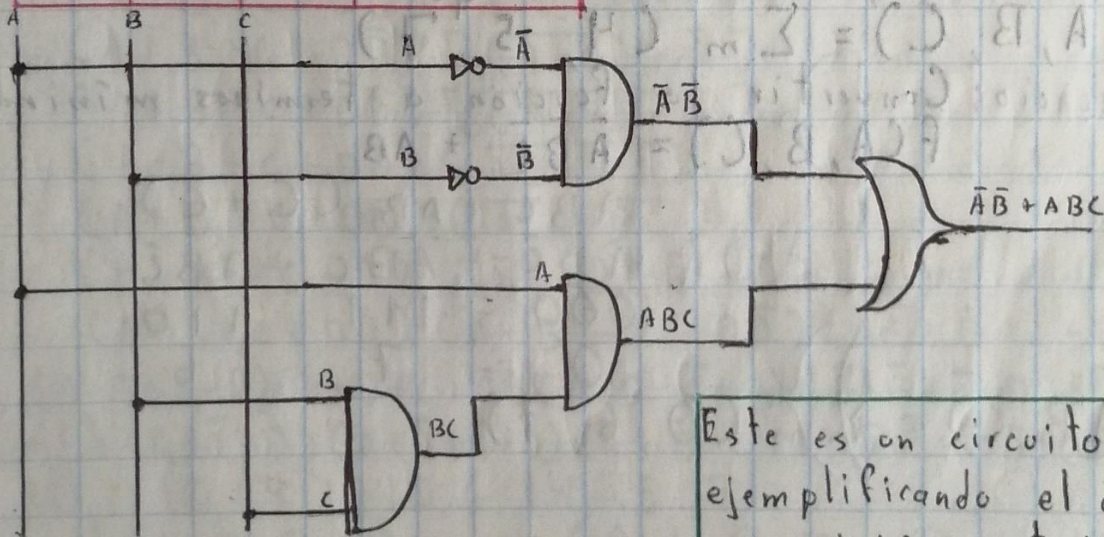 A B C
A Ā
Ā B̄
B B̄
Ā B̄ + ABC
A
ABC
B
BC
C
Este es un circuito
ejemplificando el